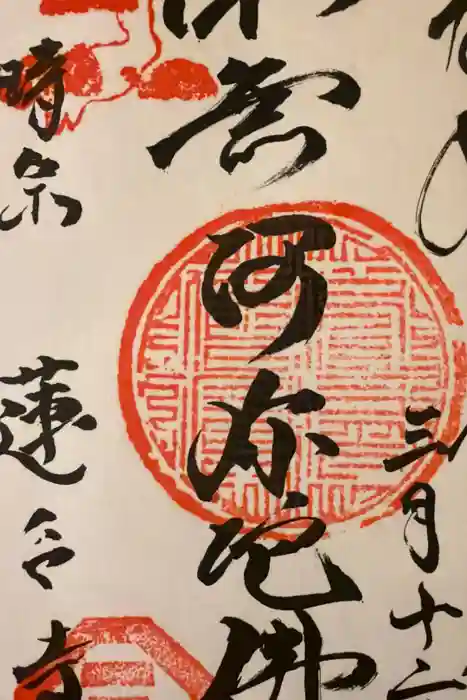 三月十二
無阿弥陀佛
時宗 蓮台寺